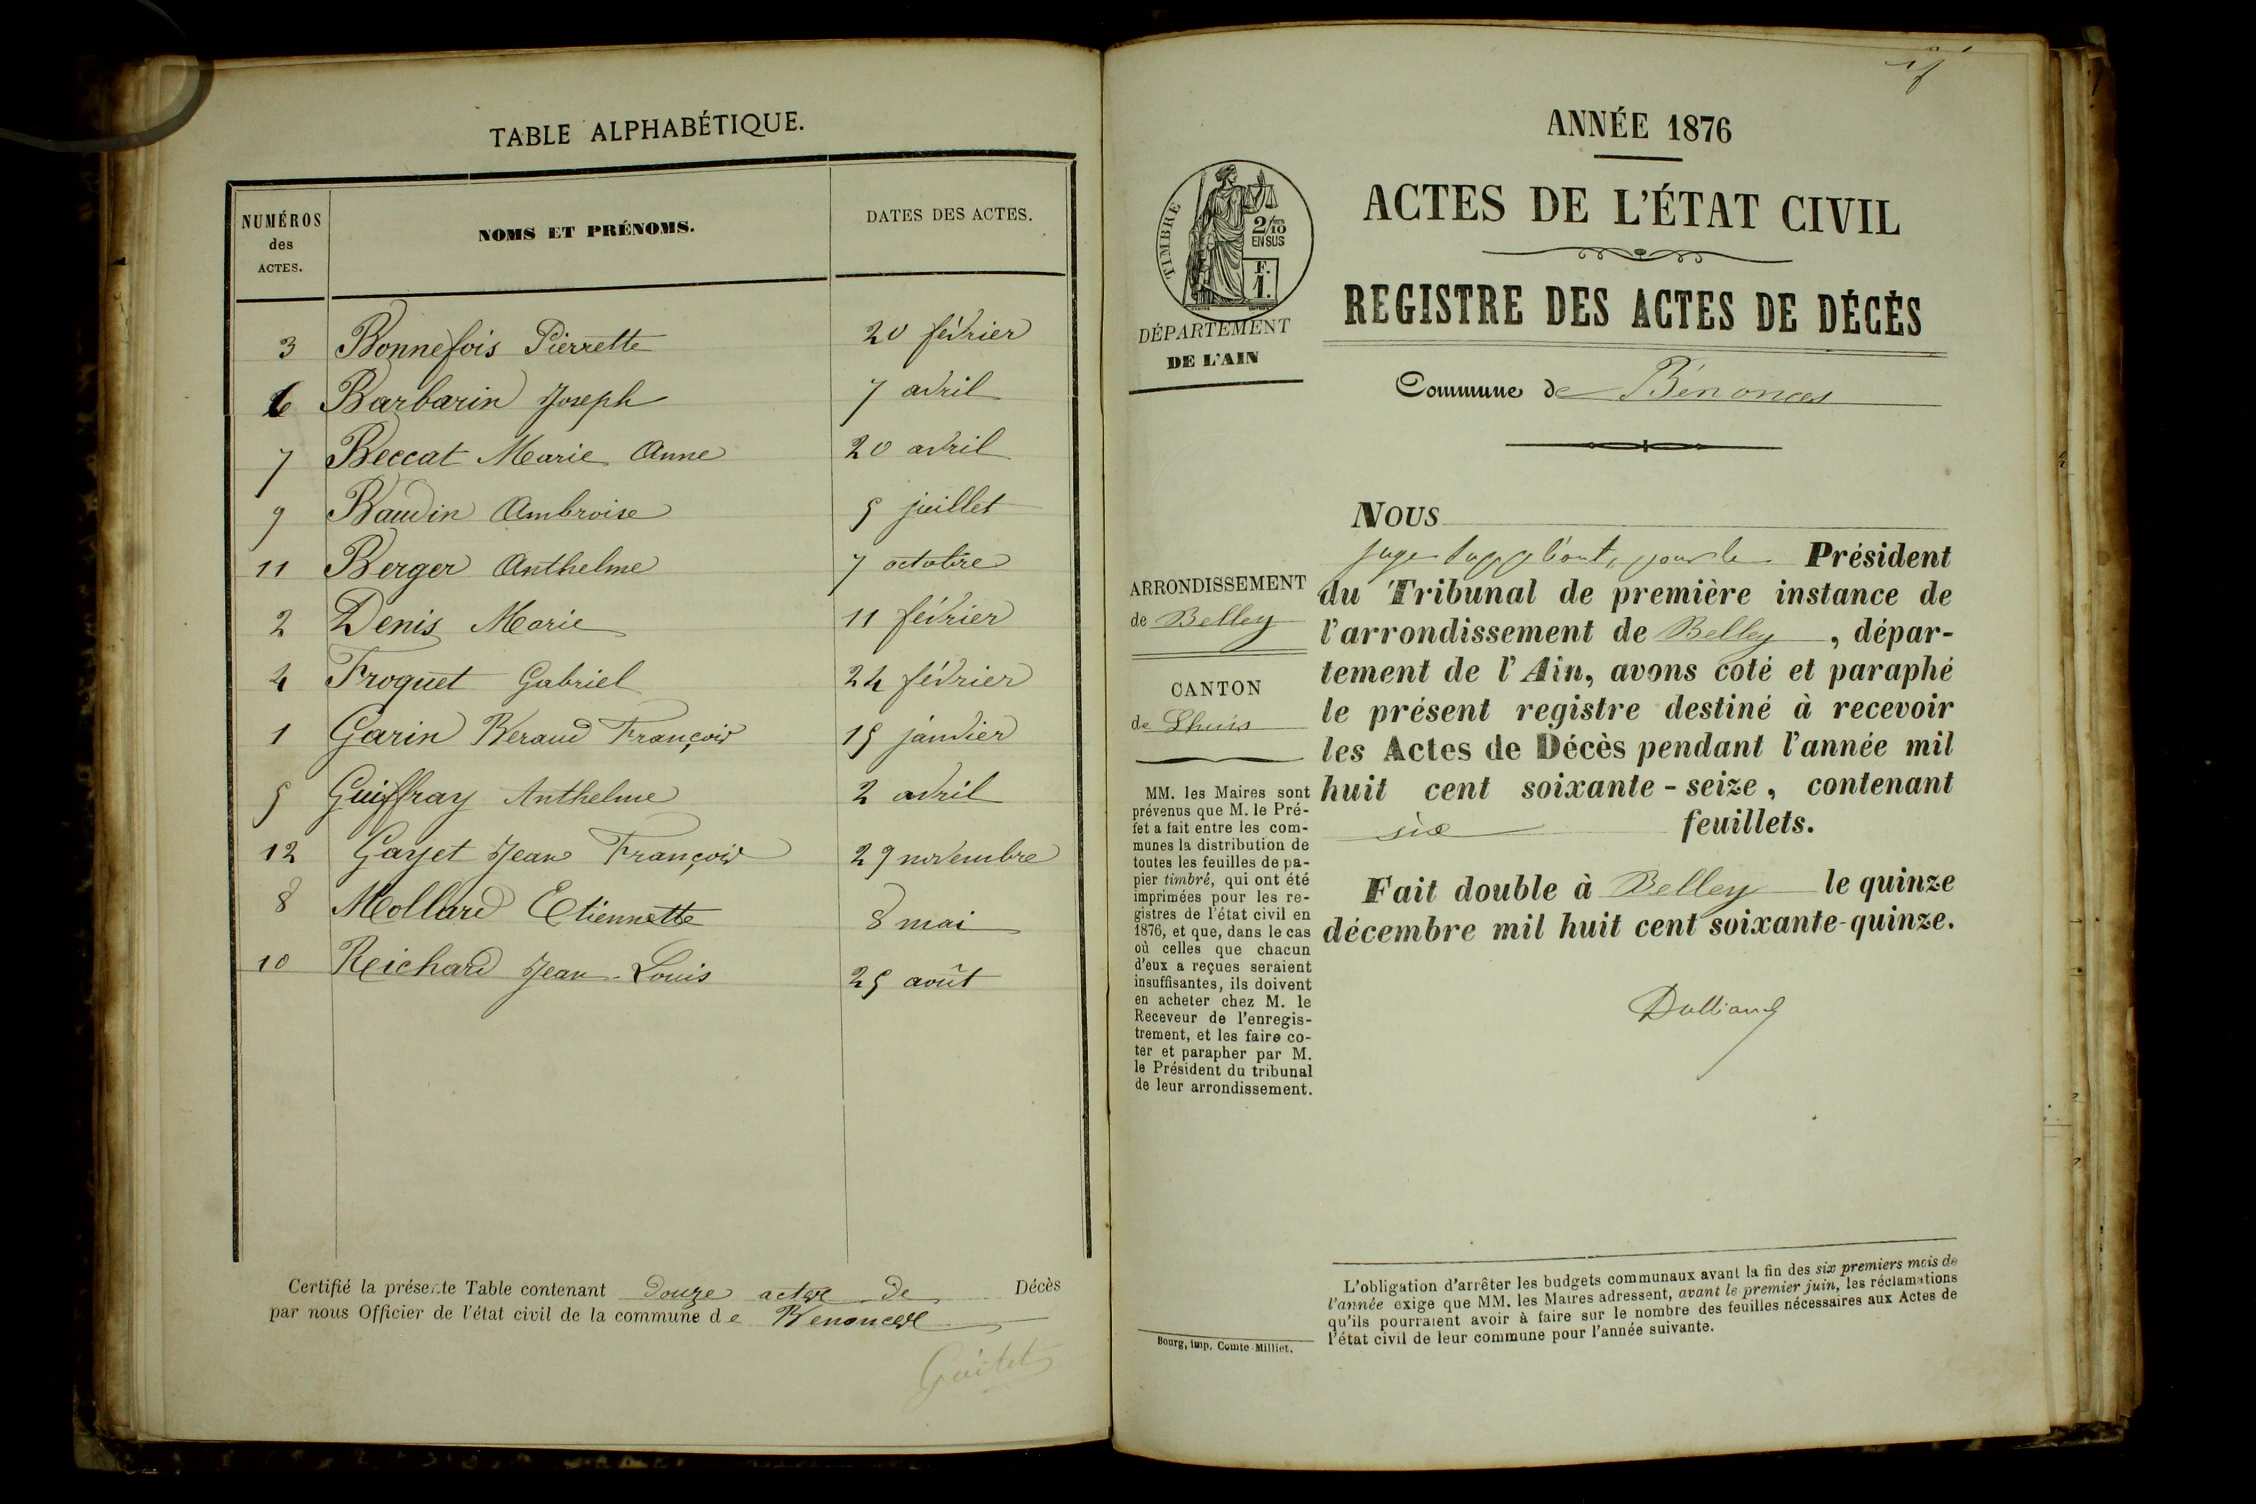 TABLE ALPHABÉTIQUE.
NUMÉROS des ACTES. NOMS ET PRÉNOMS. DATES DES ACTES.
3 Bonnefois Pierrette 20 février
6 Barbarin Joseph 7 avril
7 Beccat Marie Anne 20 avril
9 Baudin Ambroise 5 juillet
11 Berger Anthelme 7 octobre
2 Denis Marie 11 février
4 Froquet Gabriel 24 février
1 Garin Beraud François 15 janvier
5 Guiffray Anthelme 2 avril
12 Gayet Jean François 29 novembre
8 Mollard Etiennette 8 mai
10 Reichard Jean-Louis 25 août
Certifié la présente Table contenant douze actes de Décès
par nous Officier de l'état civil de la commune de Benonces
ANNÉE 1876
ACTES DE L'ÉTAT CIVIL
REGISTRE DES ACTES DE DÉCÈS
TIMBRE
2/10
EN SUS
F.
1.
DÉPARTEMENT
DE L'AIN
Commune de Bénonces
ARRONDISSEMENT
de Belley
CANTON
de Lhuis
MM. les Maires sont
prévenus que M. le Pré-
fet a fait entre les com-
munes la distribution de
toutes les feuilles de pa-
pier timbré, qui ont été
imprimées pour les re-
gistres de l'état civil en
1876, et que, dans le cas
où celles que chacun
d'eux a reçues seraient
insuffisantes, ils doivent
en acheter chez M. le
Receveur de l'enregis-
trement, et les faire co-
ter et parapher par M.
le Président du tribunal
de leur arrondissement.
NOUS
juge suppléant, pour le Président
du Tribunal de première instance de
l'arrondissement de Belley, dépar-
tement de l'Ain, avons coté et paraphé
le présent registre destiné à recevoir
les Actes de Décès pendant l'année mil
huit cent soixante-seize, contenant
six feuillets.
Fait double à Belley le quinze
décembre mil huit cent soixante-quinze.
L'obligation d'arrêter les budgets communaux avant la fin des six premiers mois de
l'année exige que MM. les Maires adressent, avant le premier juin, les réclamations
qu'ils pourraient avoir à faire sur le nombre des feuilles nécessaires aux Actes de
l'état civil de leur commune pour l'année suivante.
Bourg, imp. Comte-Milliet.